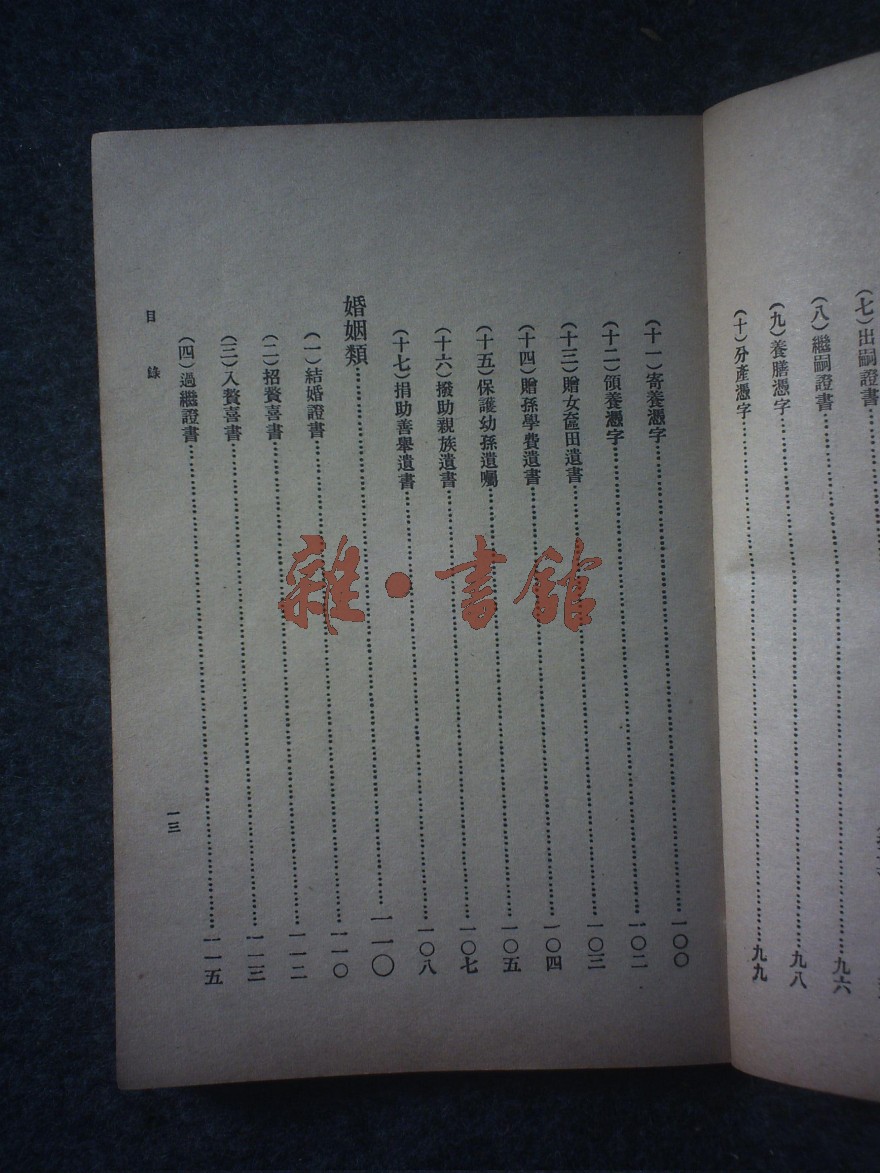 (七)出嗣證書
(八)繼嗣證書……九六
(九)養膳憑字……九八
(十)分產憑字……九九
(十一)寄養憑字……一〇〇
(十二)領養憑字……一〇二
(十三)贈女奩田遺書……一〇三
(十四)贈孫學費遺書……一〇四
(十五)保護幼孫遺囑……一〇五
(十六)撥助親族遺書……一〇七
(十七)捐助善舉遺書……一〇八
婚姻類……一一〇
(一)結婚證書……一一〇
(二)招贅喜書……一一二
(三)入贅喜書……一一三
(四)過繼證書……一一五
目錄
一三
雜·書館